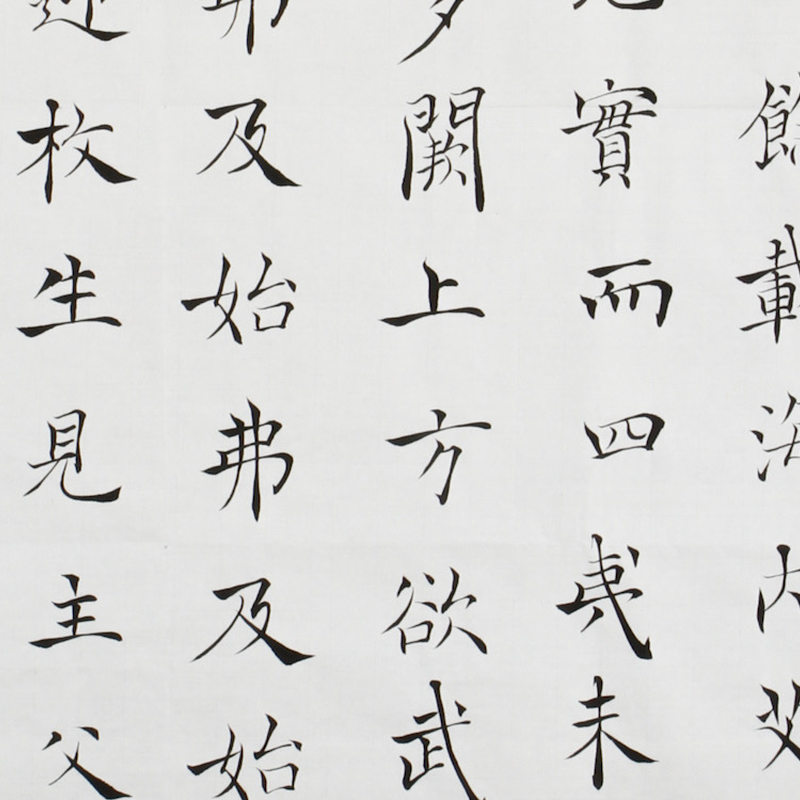 載
實而四夷未
闕上方欲武
弗及始弗及始
枚生見主父